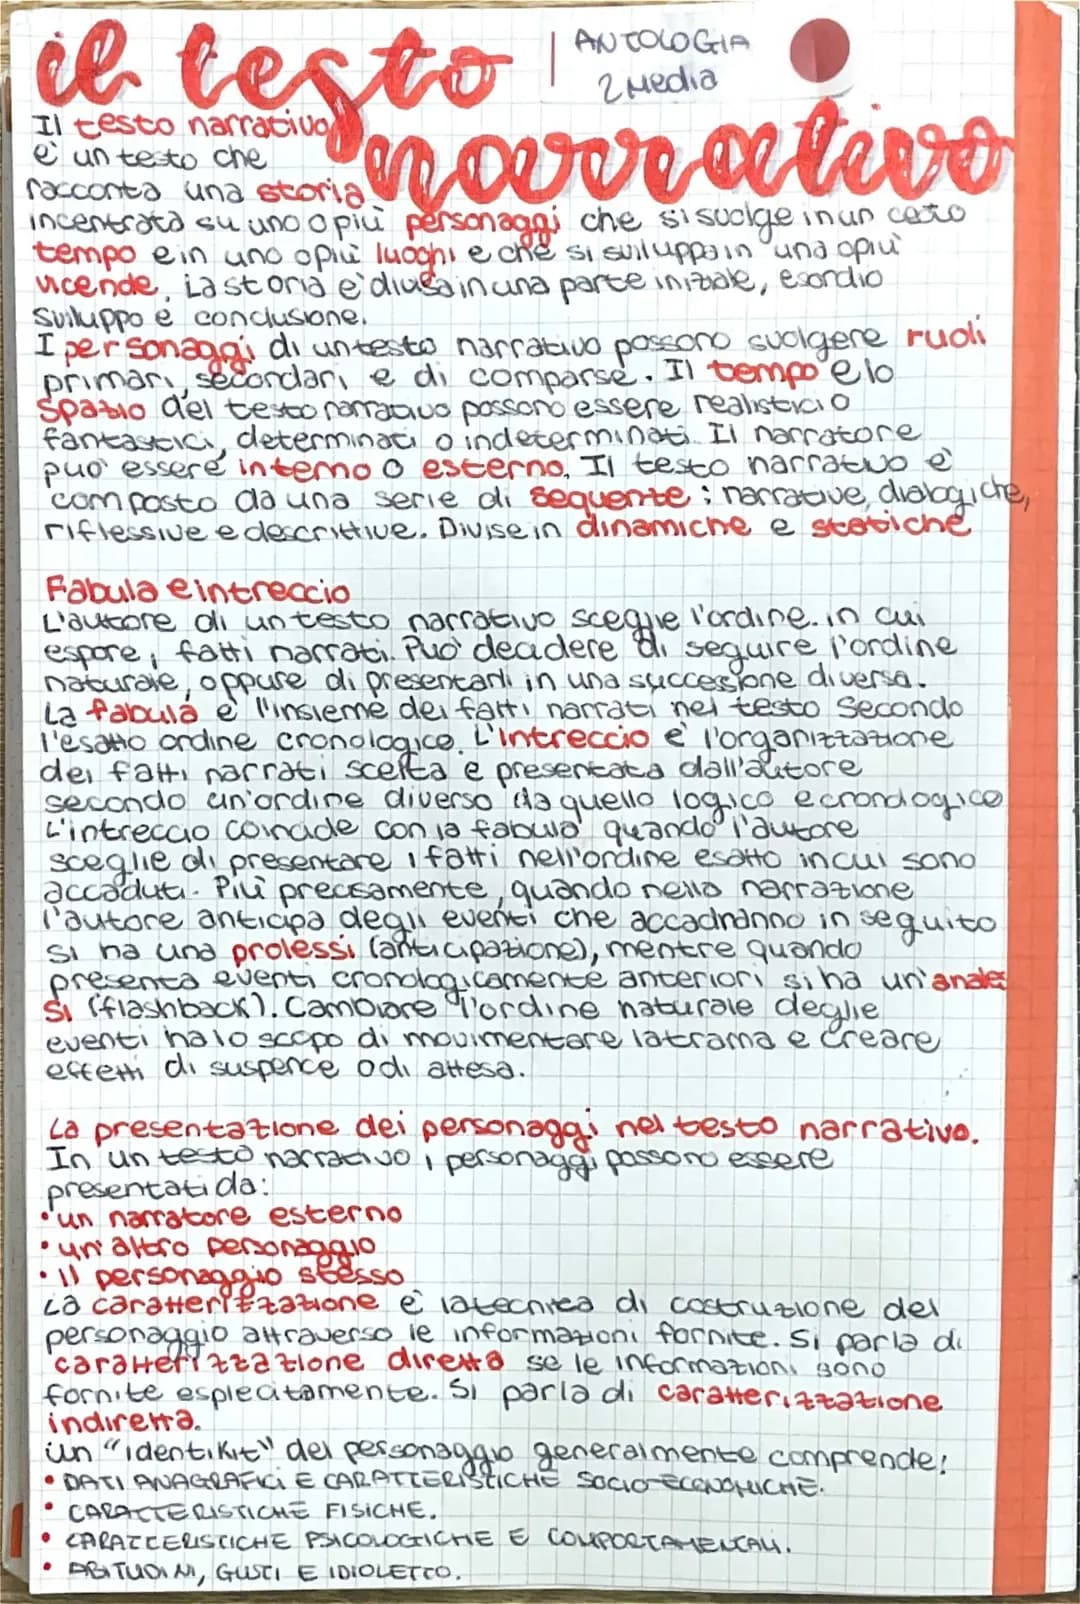 il testo narrativo
ANTOLOGIA
2 Media
Il testo narrativo
e' un testo che
racconta una storia
incentrata su uno o più personaggi che si svolge in un certo
tempo e in uno o più luoghi e che si sviluppa in una o più
vicende. La storia e' divisa in una parte iniziale, esordio
sviluppo e conclusione.
I personaggi di un testo narrativo possono svolgere ruoli
primari, secondari e di comparse. Il tempo e lo
spazio del testo narrativo possono essere realistici o
fantastici, determinati o indeterminati. Il narratore
puo' essere interno o esterno. Il testo narrativo e'
composto da una serie di sequente: narrative, dialogiche,
riflessive e descrittive. Divise in dinamiche e statiche
Fabula e intreccio
L'autore di un testo narrativo sceglie l'ordine in cui
esporre i fatti narrati. Puo' decidere di seguire l'ordine
naturale, oppure di presentarli in una successione diversa.
La fabula e' l'insieme dei fatti narrati nel testo secondo
l'esatto ordine cronologico. L'intreccio e' l'organizzazione
dei fatti narrati scelta e presentata dall'autore
secondo un'ordine diverso da quello logico e cronologico
L'intreccio coincide con la fabula quando l'autore
sceglie di presentare i fatti nell'ordine esatto in cui sono
accaduti. Più precisamente, quando nella narrazione
l'autore anticipa degli eventi che accadranno in seguito
si ha una prolessi (anticipazione), mentre quando
presenta eventi cronologicamente anteriori si ha un'anales
si (flashback). Cambiare l'ordine naturale deglie
eventi ha lo scopo di movimentare la trama e creare
effetti di suspence o di attesa.
La presentazione dei personaggi nel testo narrativo.
In un testo narrativo i personaggi possono essere
presentati da:
• un narratore esterno
• un'altro personaggio
• il personaggio stesso
La caratterizzazione e' la tecnica di costruzione del
personaggio attraverso le informazioni fornite. Si parla di
caratterizzazione diretta se le informazioni sono
fornite esplecitamente. Si parla di caratterizzazione
indiretta.
Un "identikit" del personaggio generalmente comprende:
• DATI ANAGRAFICI E CARATTERISTICHE SOCIO-ECONOMICHE.
• CARATTERISTICHE FISICHE.
• CARATTERISTICHE PSICOLOGICHE E COMPORTAMENTALI.
• ABITUDINI, GUSTI E IDIOLETTO.